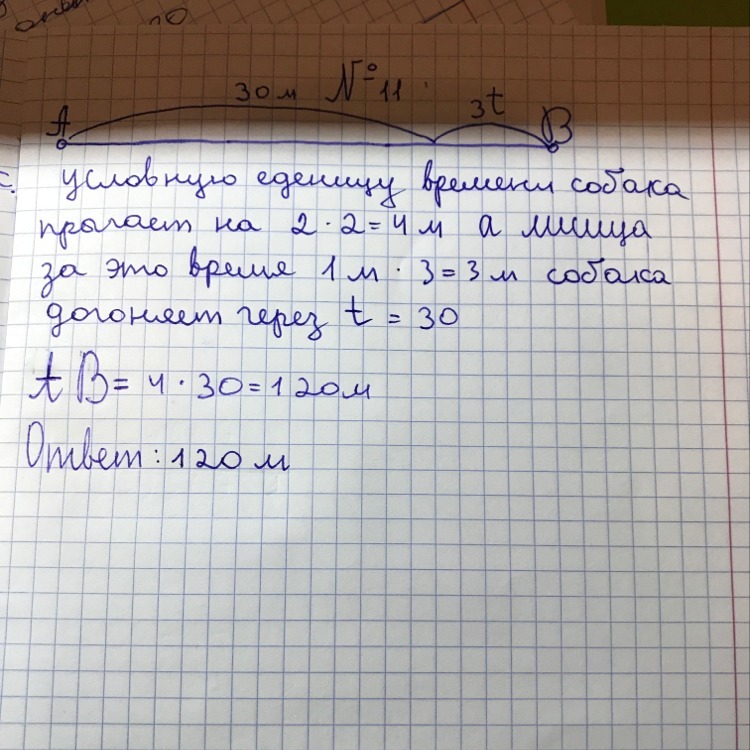 30 м № 11 3t
A B
условную еденицу времени собака
прыгает на 2 · 2 = 4 м а лисица
за это время 1 м · 3 = 3 м собака
догоняет через t = 30
AB = 4 · 30 = 120 м
Ответ: 120 м